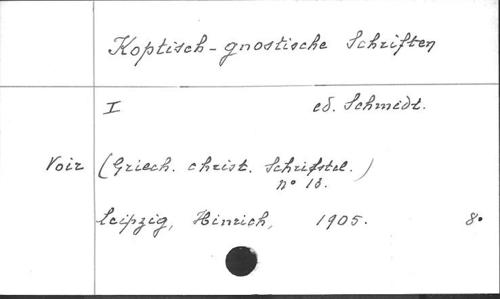 Koptisch-gnostische Schriften
I ed. Schmidt.
Voir (Griech. christ. Schrifstel.)
n° 13.
Leipzig, Hinrich, 1905. 8°